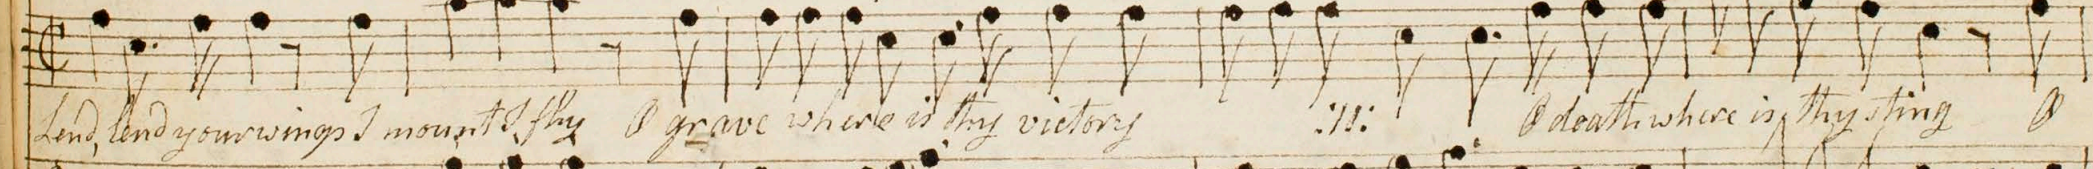 Lend, lend your wings I mount I fly O grave where is thy victory :||: O death where is thy sting O